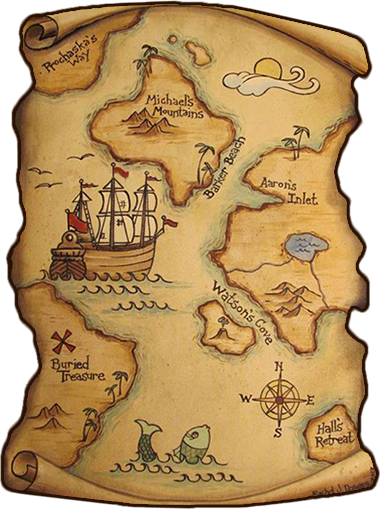 Prochaska's
Way
Michael's
Mountains
Barker Beach
Aaron's
Inlet
Watson's Cove
Buried
Treasure
N
W
E
S
Hall's
Retreat